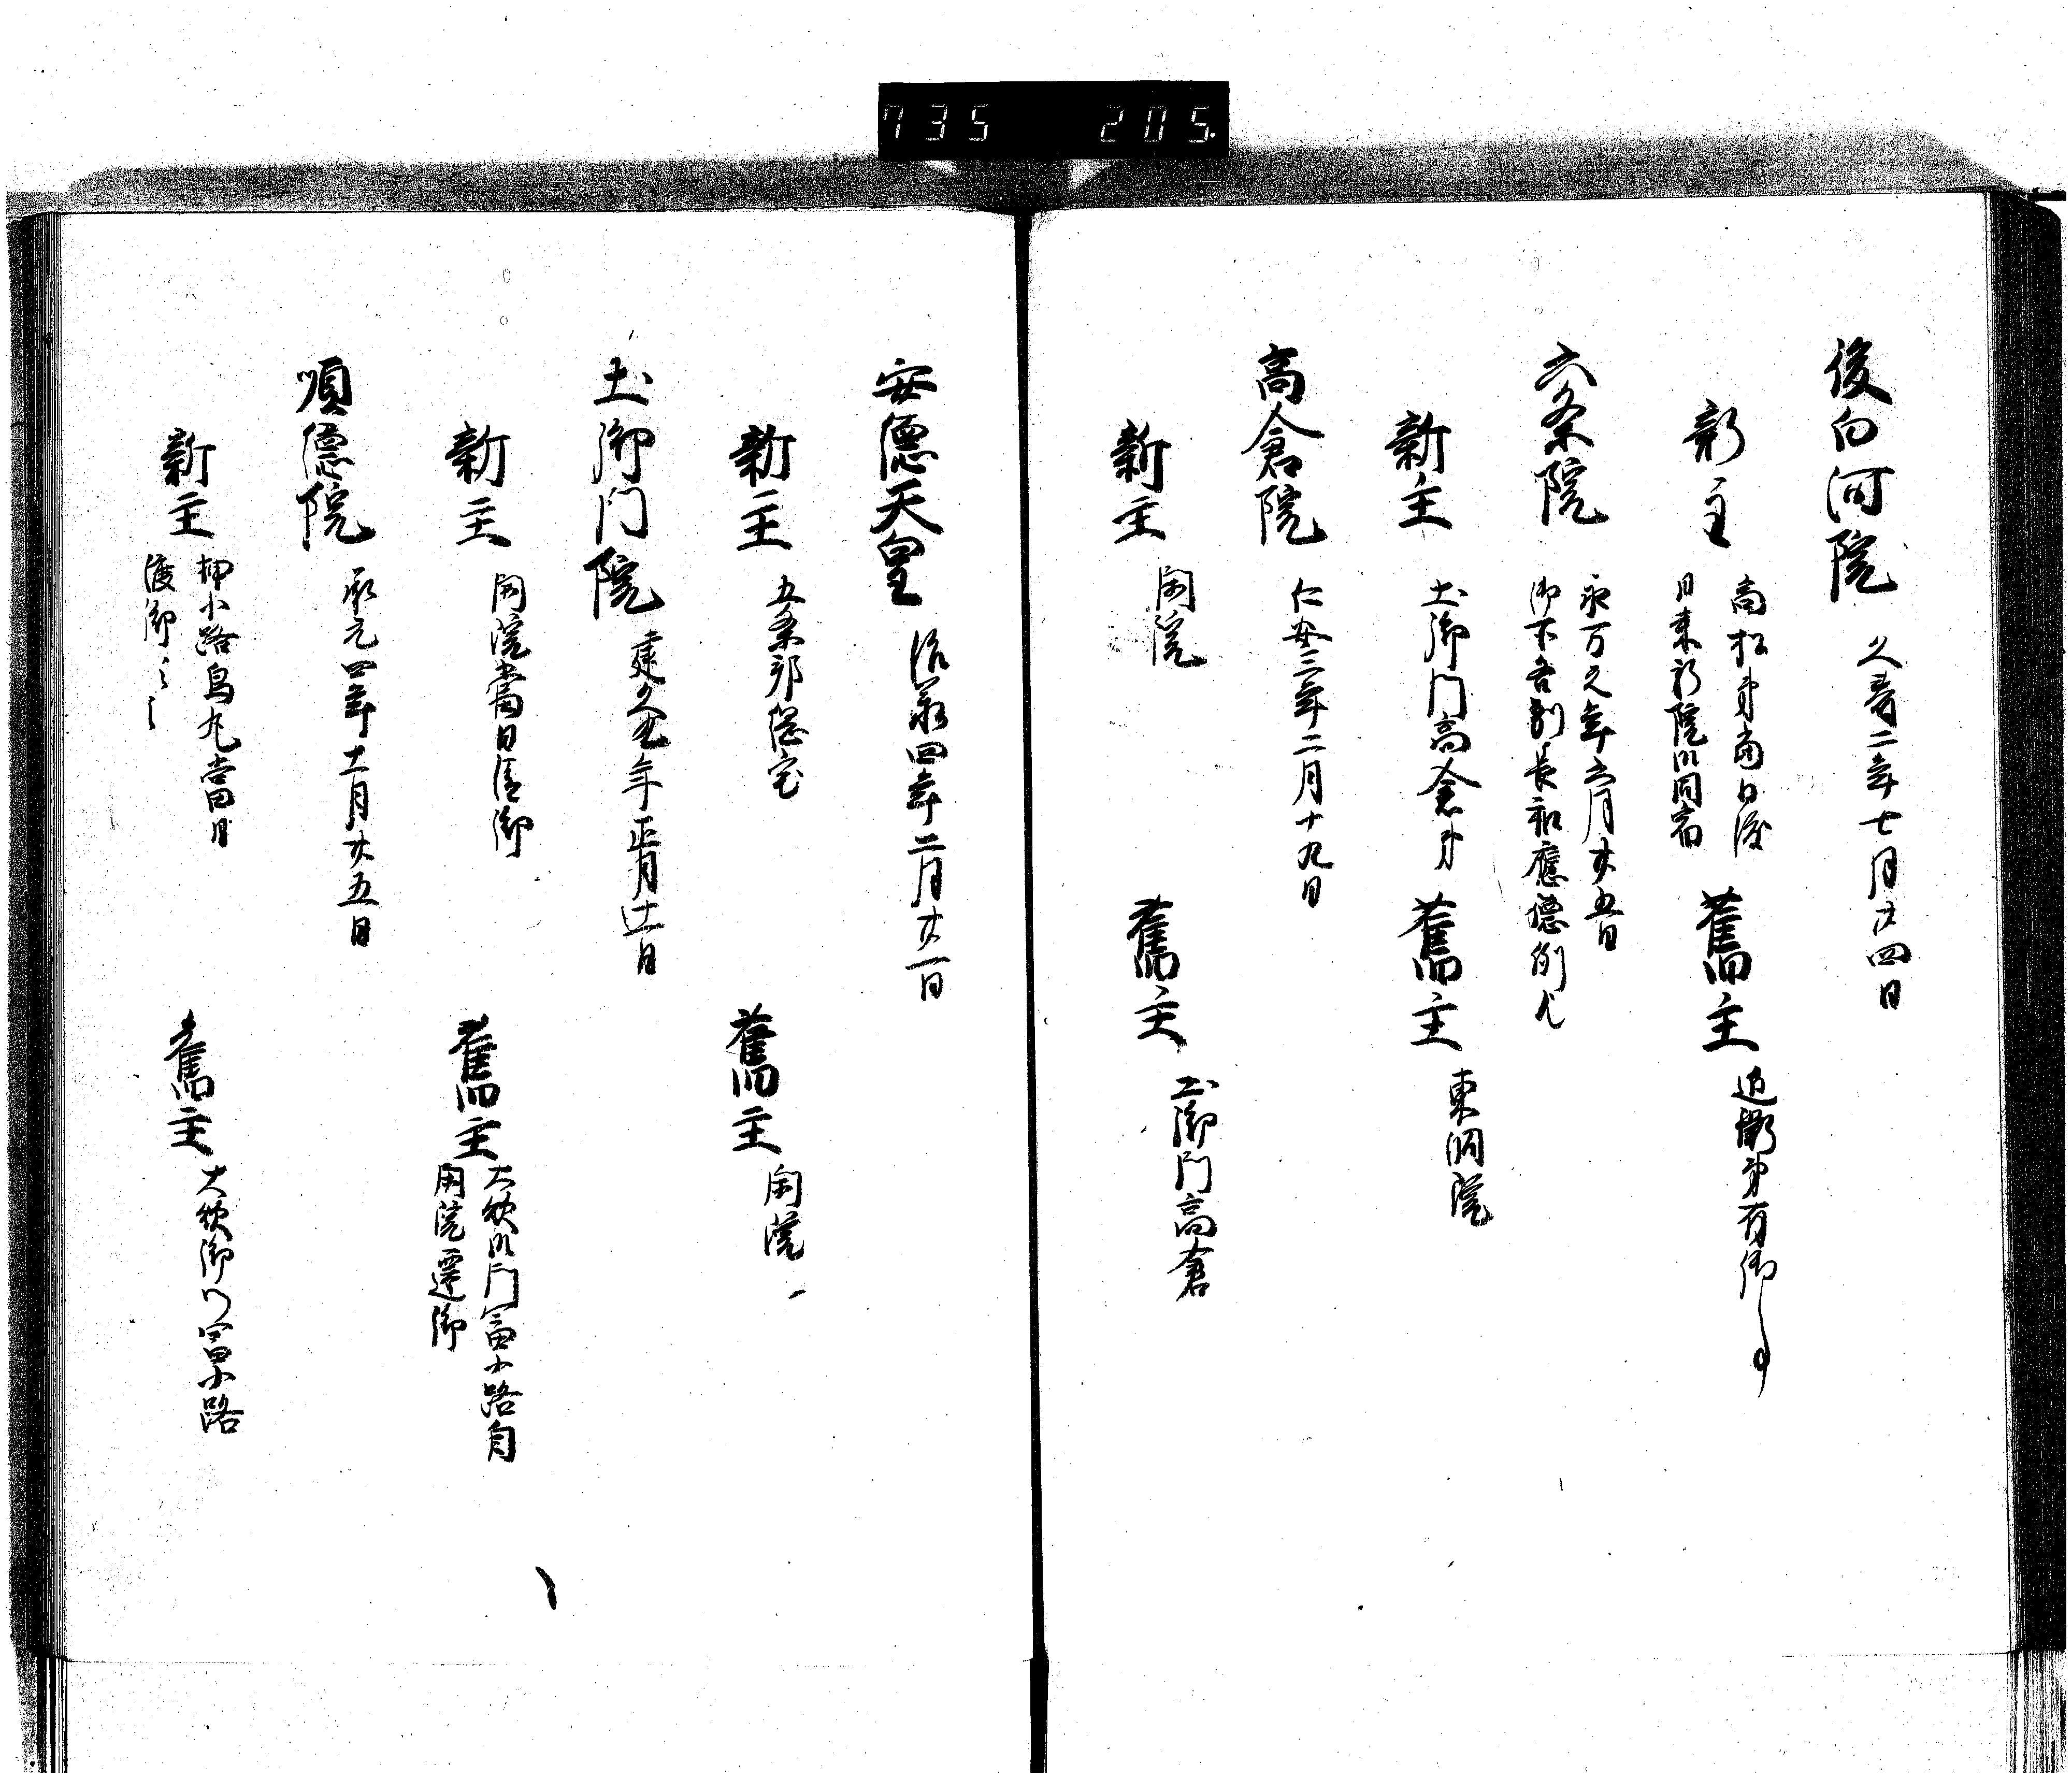 735 205
後白河院 久寿二年七月廿四日
新主 高松第当日渡
日来新院御同宿
旧主 近衛第有御
六条院 永万元年六月廿五日
御下各別長和応徳例也
新主 土御門高倉第 旧主 東洞院
高倉院 仁安三年二月十九日
新主 閑院 旧主 土御門高倉
安徳天皇 治承四年二月廿一日
新主 五条邦綱宅 旧主 閑院
土御門院 建久九年正月十一日
新主 閑院当日渡御 旧主 大炊御門富小路自
閑院遷御
順徳院 承元四年十一月廿五日
新主 押小路烏丸当日
渡御云々
旧主 大炊御門富小路